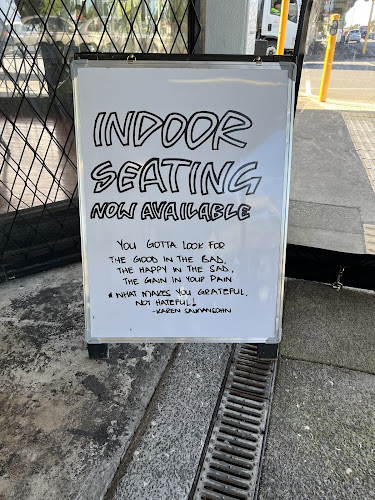 INDOOR
SEATING
NOW AVAILABLE
YOU GOTTA LOOK FOR
THE GOOD IN THE BAD,
THE HAPPY IN THE SAD,
THE GAIN IN YOUR PAIN
& WHAT MAKES YOU GRATEFUL,
NOT HATEFUL!
-KAREN SALMANSOHN